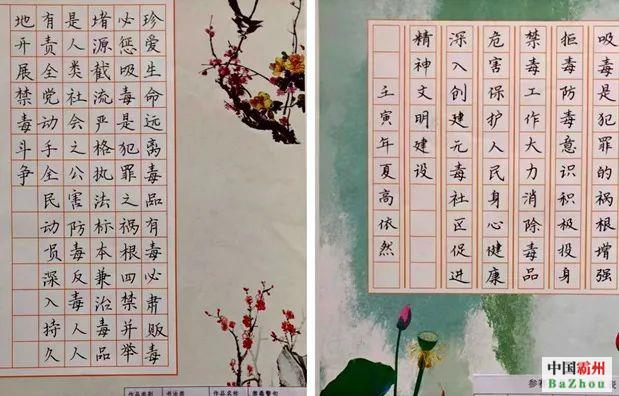 珍爱生命远离毒品有毒必肃贩毒
必惩吸毒是犯罪之祸根四禁并举
堵源截流严格执法标本兼治毒品
是人类社会之公害防毒反毒人人
有责全党动手全民动损深入持久
地开展禁毒斗争
作品类别 书法类 作品名称
吸毒是犯罪的祸根增强
拒毒防毒意识积极投身
禁毒工作大力消除毒品
危害保护人民身心健康
深入创建无毒社区促进
精神文明建设
壬寅年夏高依然
中国霸州
BaZhou.com